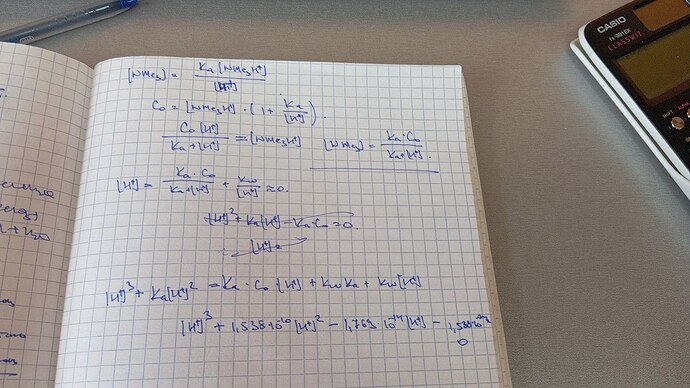 [NMe₃] = Ka [NMe₃H⁺] / [H⁺]
C₀ = [NMe₃H⁺] · (1 + Ka / [H⁺]).
C₀ [H⁺] / Ka + [H⁺] = [NMe₃H⁺] [NMe₃] = Ka · C₀ / Ka + [H⁺].
[H⁺] = Ka · C₀ / Ka + [H⁺] + Kw / [H⁺] ≈ 0.
[H⁺]² + Ka[H⁺] − Ka C₀ = 0.
[H⁺] =
[H⁺]³ + Ka[H⁺]² = Ka · C₀ · [H⁺] + Kw Ka + Kw [H⁺]
[H⁺]³ + 1,538·10⁻¹⁰ [H⁺]² − 1,769·10⁻¹⁴ [H⁺] −
0
CASIO
fx-991EX
CLASSWIZ
SHIFT